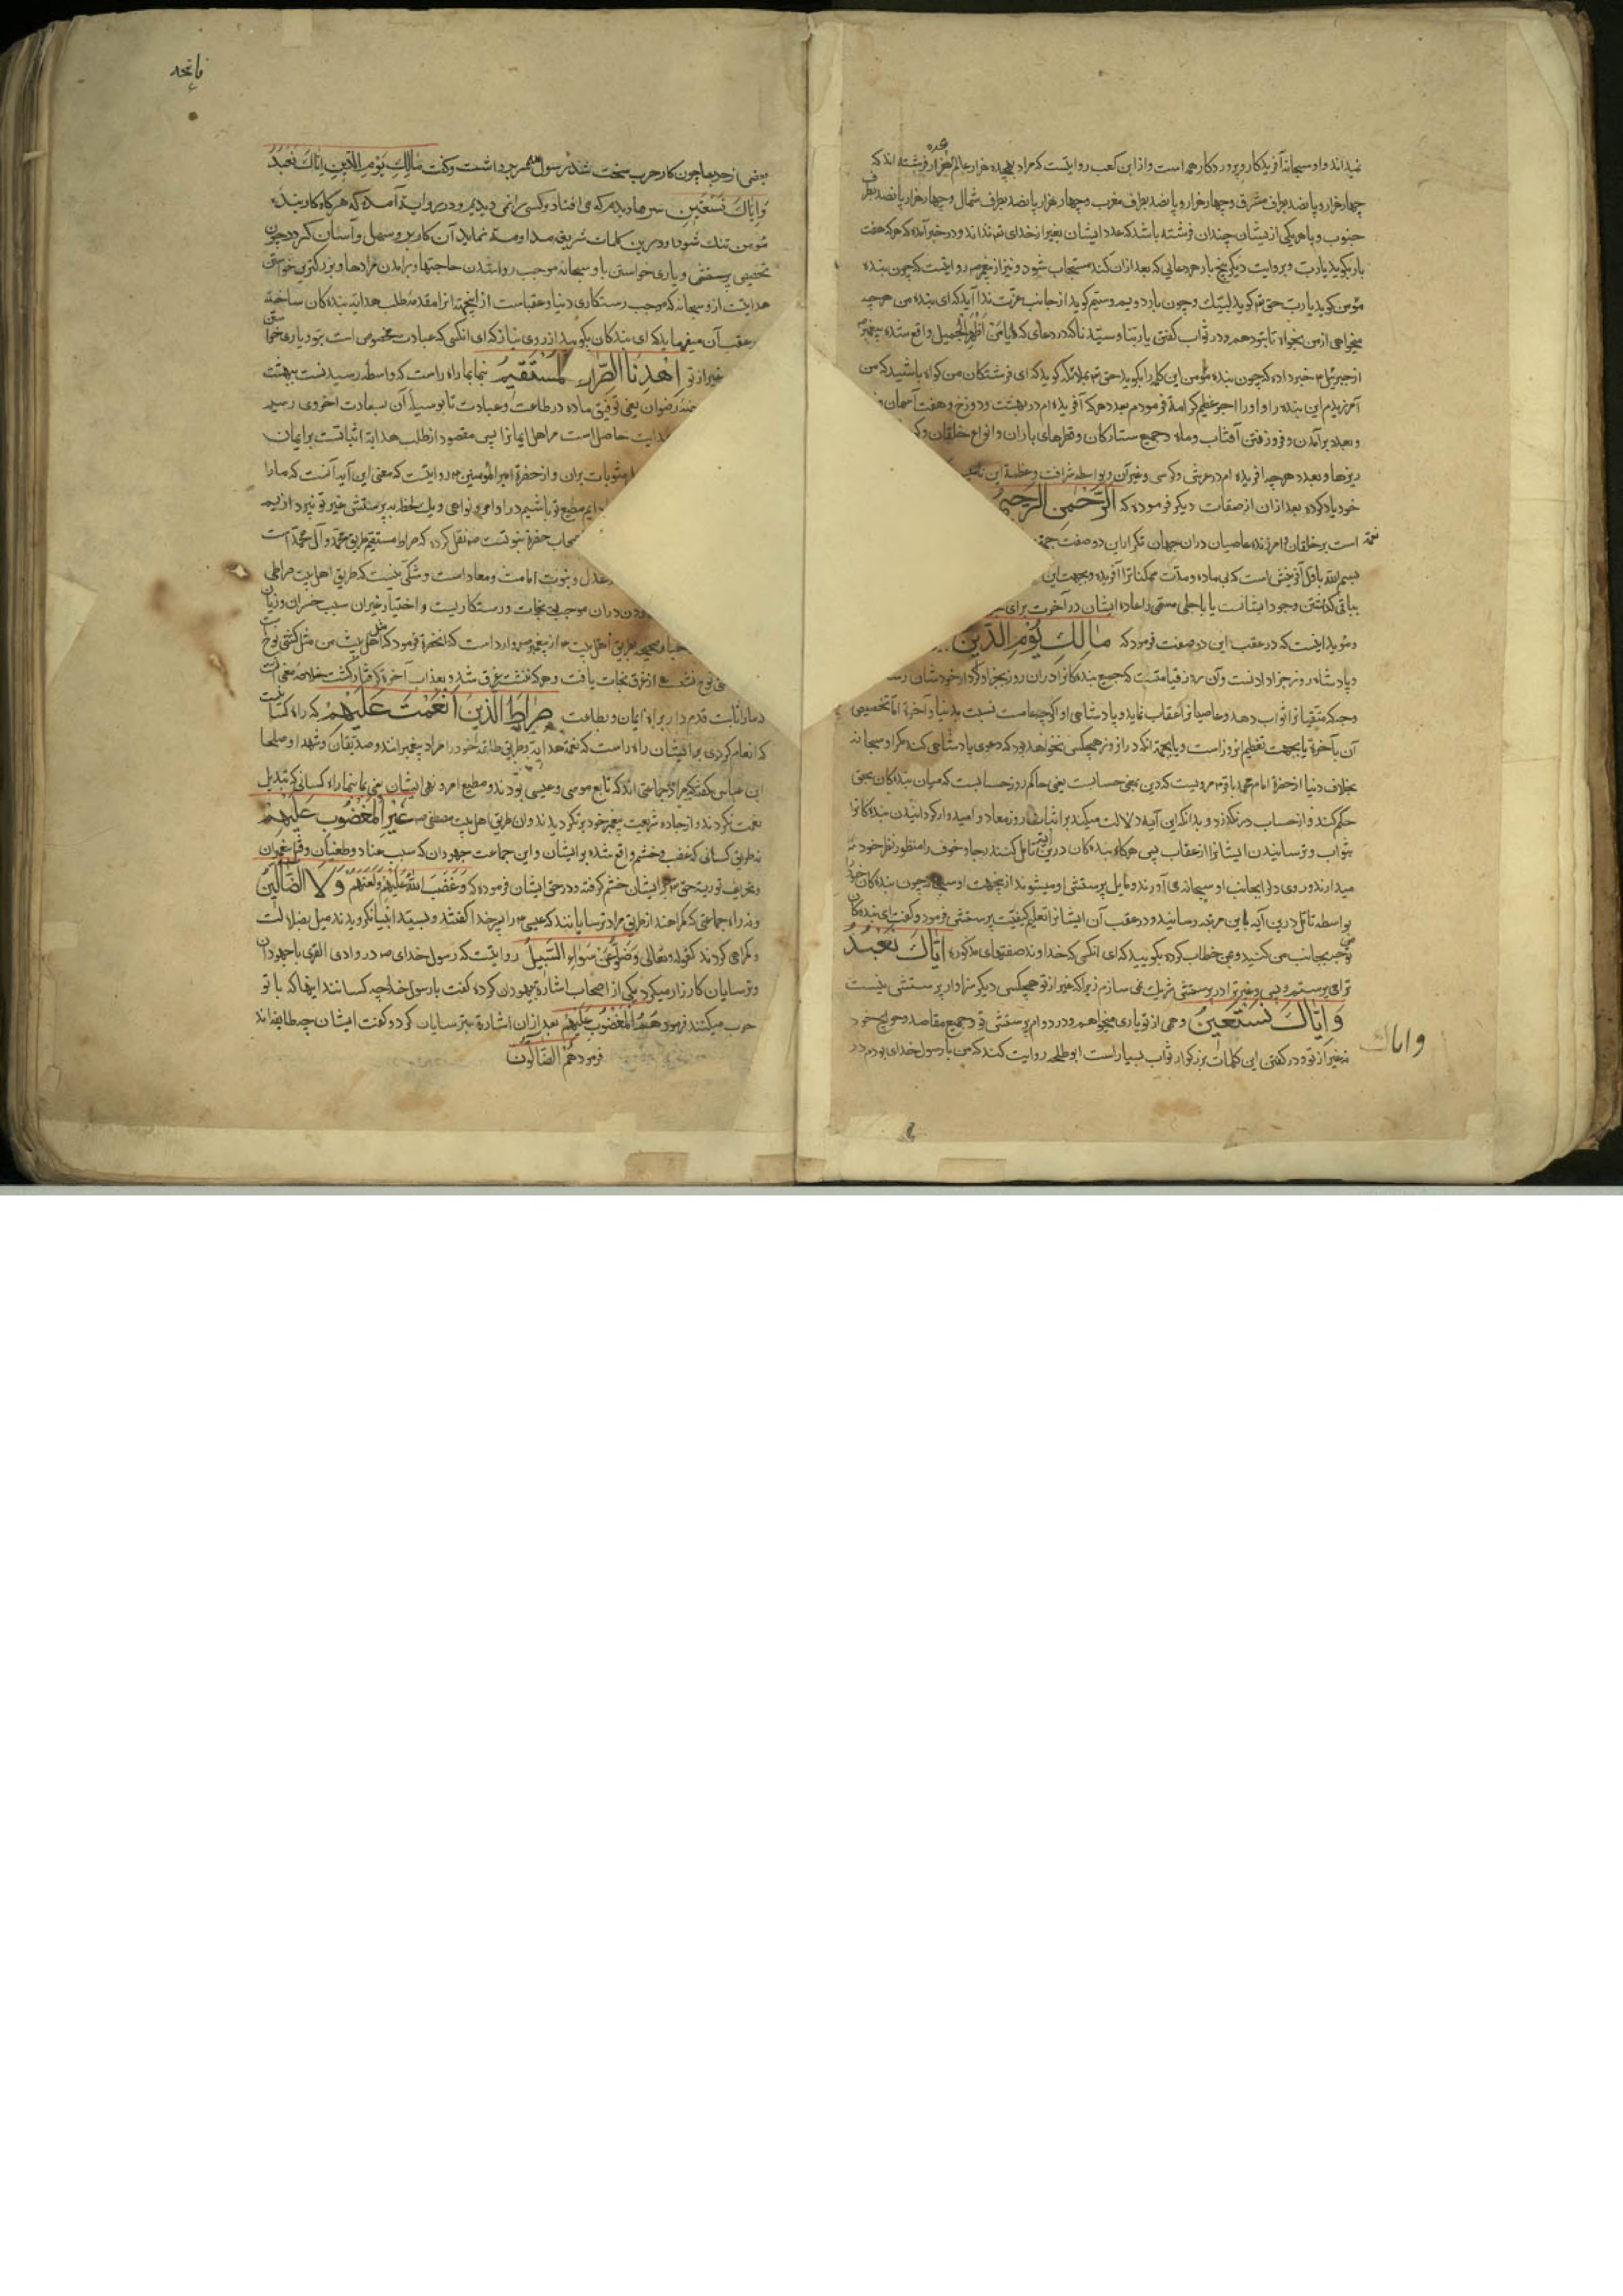 نمیداند و او سبحانه آفریدکار و پروردکار همه است و از ابن کعب روایتست که مراد بهجده هزار عالم هژده هزار فرشته اند که
چهار هزار و پانصد بطرف مشرق و چهار هزار و پانصد بطرف مغرب و چهار هزار و پانصد بطرف شمال و چهار هزار و پانصد بطرف
جنوب و با هر یکی از ایشان چندان فرشته باشد که عدد ایشان بغیر از خدای تعم نداند و در خبر آمده که هر که هفت
بار بکوید یا رب و بروایت دیکر پنج بار هر دعایی که بعد از ان کند مستجاب شود و نیز از پیغمبر روایتست که چون بنده
مؤمن کوید یا رب حق تعم کوید لبیک و چون بار دویم و سیم کوید از جانب عزت ندا آید که ای بنده من هر چه
میخواهی از من بخواه تا بتو دهم و در ثواب کفتن یا ربنا و سیدنا که در دعای یا من اظهر الجمیل واقع شده پیغمبر
از جبرئیل خبر داده که چون بنده مؤمن این کلمه را بکوید حق تعم بملائکه کوید که ای فرشتکان من کواه باشید که من
آمرزیدم این بنده را و او را اجر عظیم کرامة فرمودم بعدد هر که آفریده ام در بهشت و دوزخ و هفت آسمان و
و بعدد بر آمدن و فرو رفتن آفتاب و ماه و جمیع ستارکان و قطرهای باران و انواع خلقان و
ریزها و بعدد هر چه آفریده ام در عرش و کرسی و غیر آن و بواسطه شرافت و عظمة این
خود یاد کرده بعد از ان از صفات دیکر فرموده که الرحمن الرحیم
است بر خلقان و آمرزنده عاصیان در ان جهان تکرار این دو صفت جهة
بسم الله باول آفرینش است که بی ماده و مدت ممکنات را آفریده و بجهت این
بباقی کذاشتن وجود ایشانست یا باجل مسمی و اعاده ایشان در آخرت برای
و مؤید اینست که در عقب این دو صفت فرمود که مالک یوم الدین
و پادشاه روز جزا دادنست و آن روز قیامتست که جمیع بنده کانرا در ان روز بجزاء کردار خودشان
وجه که متقیانرا ثواب دهد و عاصیانرا عقاب نماید و پادشاهی او اکرچه عامست نسبت بدنیا و آخرة اما تخصیص
آن بآخرة یا بجهت تعظیم انروز است و یا بجهة انکه در انروز هیچکس نخواهد بود که دعوی پادشاهی کند مکر او سبحانه
بخلاف دنیا از حضرة امام محمد باقر مرویست که دین بمعنی حسابست یعنی حاکم روز حسابست که میان بنده کان بحق
حکم کند و از حساب در نکذرد و بدانکه این آیه دلالت میکند بر اثبات روز معاد و امیدوار کردانیدن بنده کانرا
بثواب و ترسانیدن ایشانرا از عقاب پس هر کاه بنده کان درین آیه تامل کنند رجا و خوف را منظور نظر خود
میدارند و روی دل بجانب او سبحانه می آورند و مایل پرستش او میشوند از ینجهت او سبحانه چون بنده کان خود
بواسطه تامل درین آیه باین مرتبه رسانید و در عقب آن ایشانرا تعلیم کیفیت پرستش فرمود و کفت ای بنده کان
توجه بجانب من کنید و بمن خطاب کرده بکویید که ای انکسی که خداوند صفتهای مذکوره ایاک نعبد
ترا می پرستیم و بس و غیر ترا در پرستش شریک نمی سازم زیرا که غیر از تو هیچکس دیکر سزاوار پرستش نیست
و ایاک نستعین و همی از تو یاری میخواهیم و در دوام پرستش تو و جمیع مقاصد و حوایج خود
نه غیر از تو و در کفتن این کلمات بزرکوار ثواب بسیار است ابو طلحه روایت کند که من با رسول خدای بودم در
و ایاک
فاتحه
بعضی از حربها چون کار حرب سخت شد رسول سر برداشت و کفت مالک یوم الدین ایاک نعبد
و ایاک نستعین سرها دیدم که می افتاد و کسی را نمی دیدیم و در روایة آمده که هر کاه کار بنده
مؤمن تنک شود و درین کلمات شریفه مداومة نماید آن کار برو سهل و آسان کردد چون
تخصیص پرستش و یاری خواستن باو سبحانه موجب روا شدن حاجتها و برآمدن مرادها و بزرکترین خواستن
هدایتست از و سبحانه که موجب رستکاری دنیا و عقباست از اینجهة انرا مقدمه طلب هدایة بنده کان ساخته
در عقب آن میفرماید که ای بندکان بکویید از روی نیاز که ای انکسی که عبادت مخصوص است بتو و یاری خواستن
غیر از تو اهدنا الصراط المستقیم بنما بما راه راست که واسطه رسیدنست ببهشت
رضوان یعنی توفیق ما ده در طاعت و عبادت تا بوسیله آن بسعادت اخروی رسیم
هدایت حاصل است مر اهل ایمانرا پس مقصود از طلب هدایة اثباتست بر ایمان
مثوبات بران و از حضرة امیر المؤمنین روایتست که معنی این آیه آنست که ما را
دایم مطیع تو باشیم در اوامر و نواهی و یک لحظه به پرستش غیر تو نپردازیم
اصحاب حضرة نبوتست نقل کرده که صراط مستقیم طریق محمد و آل محمد است
عدل و نبوت امامت و معاد است و شکی نیست که طریق اهل بیت صراطی
بودن دران موجب نجات و رستکاریست و اختیار غیر ان سبب خسران و زیان
صحیحه بطریق اهل بیت از پیغمبر وارد است که انحضرة فرمود که مثل اهل بیت من مثل کشتی نوح
از غرق نجات یافت و هر که ننشست غرق شد و بعذاب آخرة کرفتار کشت خلاصه معنی
ما را ثابت قدم دار براه ایمان و بطاعت صراط الذین انعمت علیهم که راه کسانیست
که انعام کردی بر ایشان راه راست که نعمة هدایة و طریق طاعة خود را مراد پیغمبرانند و صدیقان و شهدا و صلحا
ابن عباس کفته که مراد جماعتی اند که تابع موسی و عیسی بودند و مطیع امر و نهی ایشان یعنی بنما بما راه کسانی که تبدیل
نعمت نکردند و از جاده شریعت پیغمبر خود بر نکردیدند و ان طریق اهل بیت مصطفی غیر المغضوب علیهم
نه طریق کسانی که غضب و خشم واقع شده بر ایشان و این جماعت جهودان که سبب عناد و طغیان و
و تحریف توریة حق تعم بر ایشان خشم کرفته و در حق ایشان فرموده که و غضب الله علیهم و لعنهم و لا الضالین
و نه راه جماعتی که کمراهند از طریق مراد ترسایانند که عیسی را پسر خدا کفتند و بسید انبیا نکرویدند میل بضلالت
و کمراهی کردند کقوله تعالی و ضلوا عن سواء السبیل روایتست که رسول خدای در وادی القری با جهودان
و ترسایان کارزار میکرد یکی از اصحاب اشارة بجهودان کرده کفت یا رسول خدا چه کسانند اینها که با تو
حرب میکنند فرمود هم المغضوب علیهم بعد از ان اشارة بترسایان کرد و کفت ایشان چه طایفه اند
فرمود هم الضالون